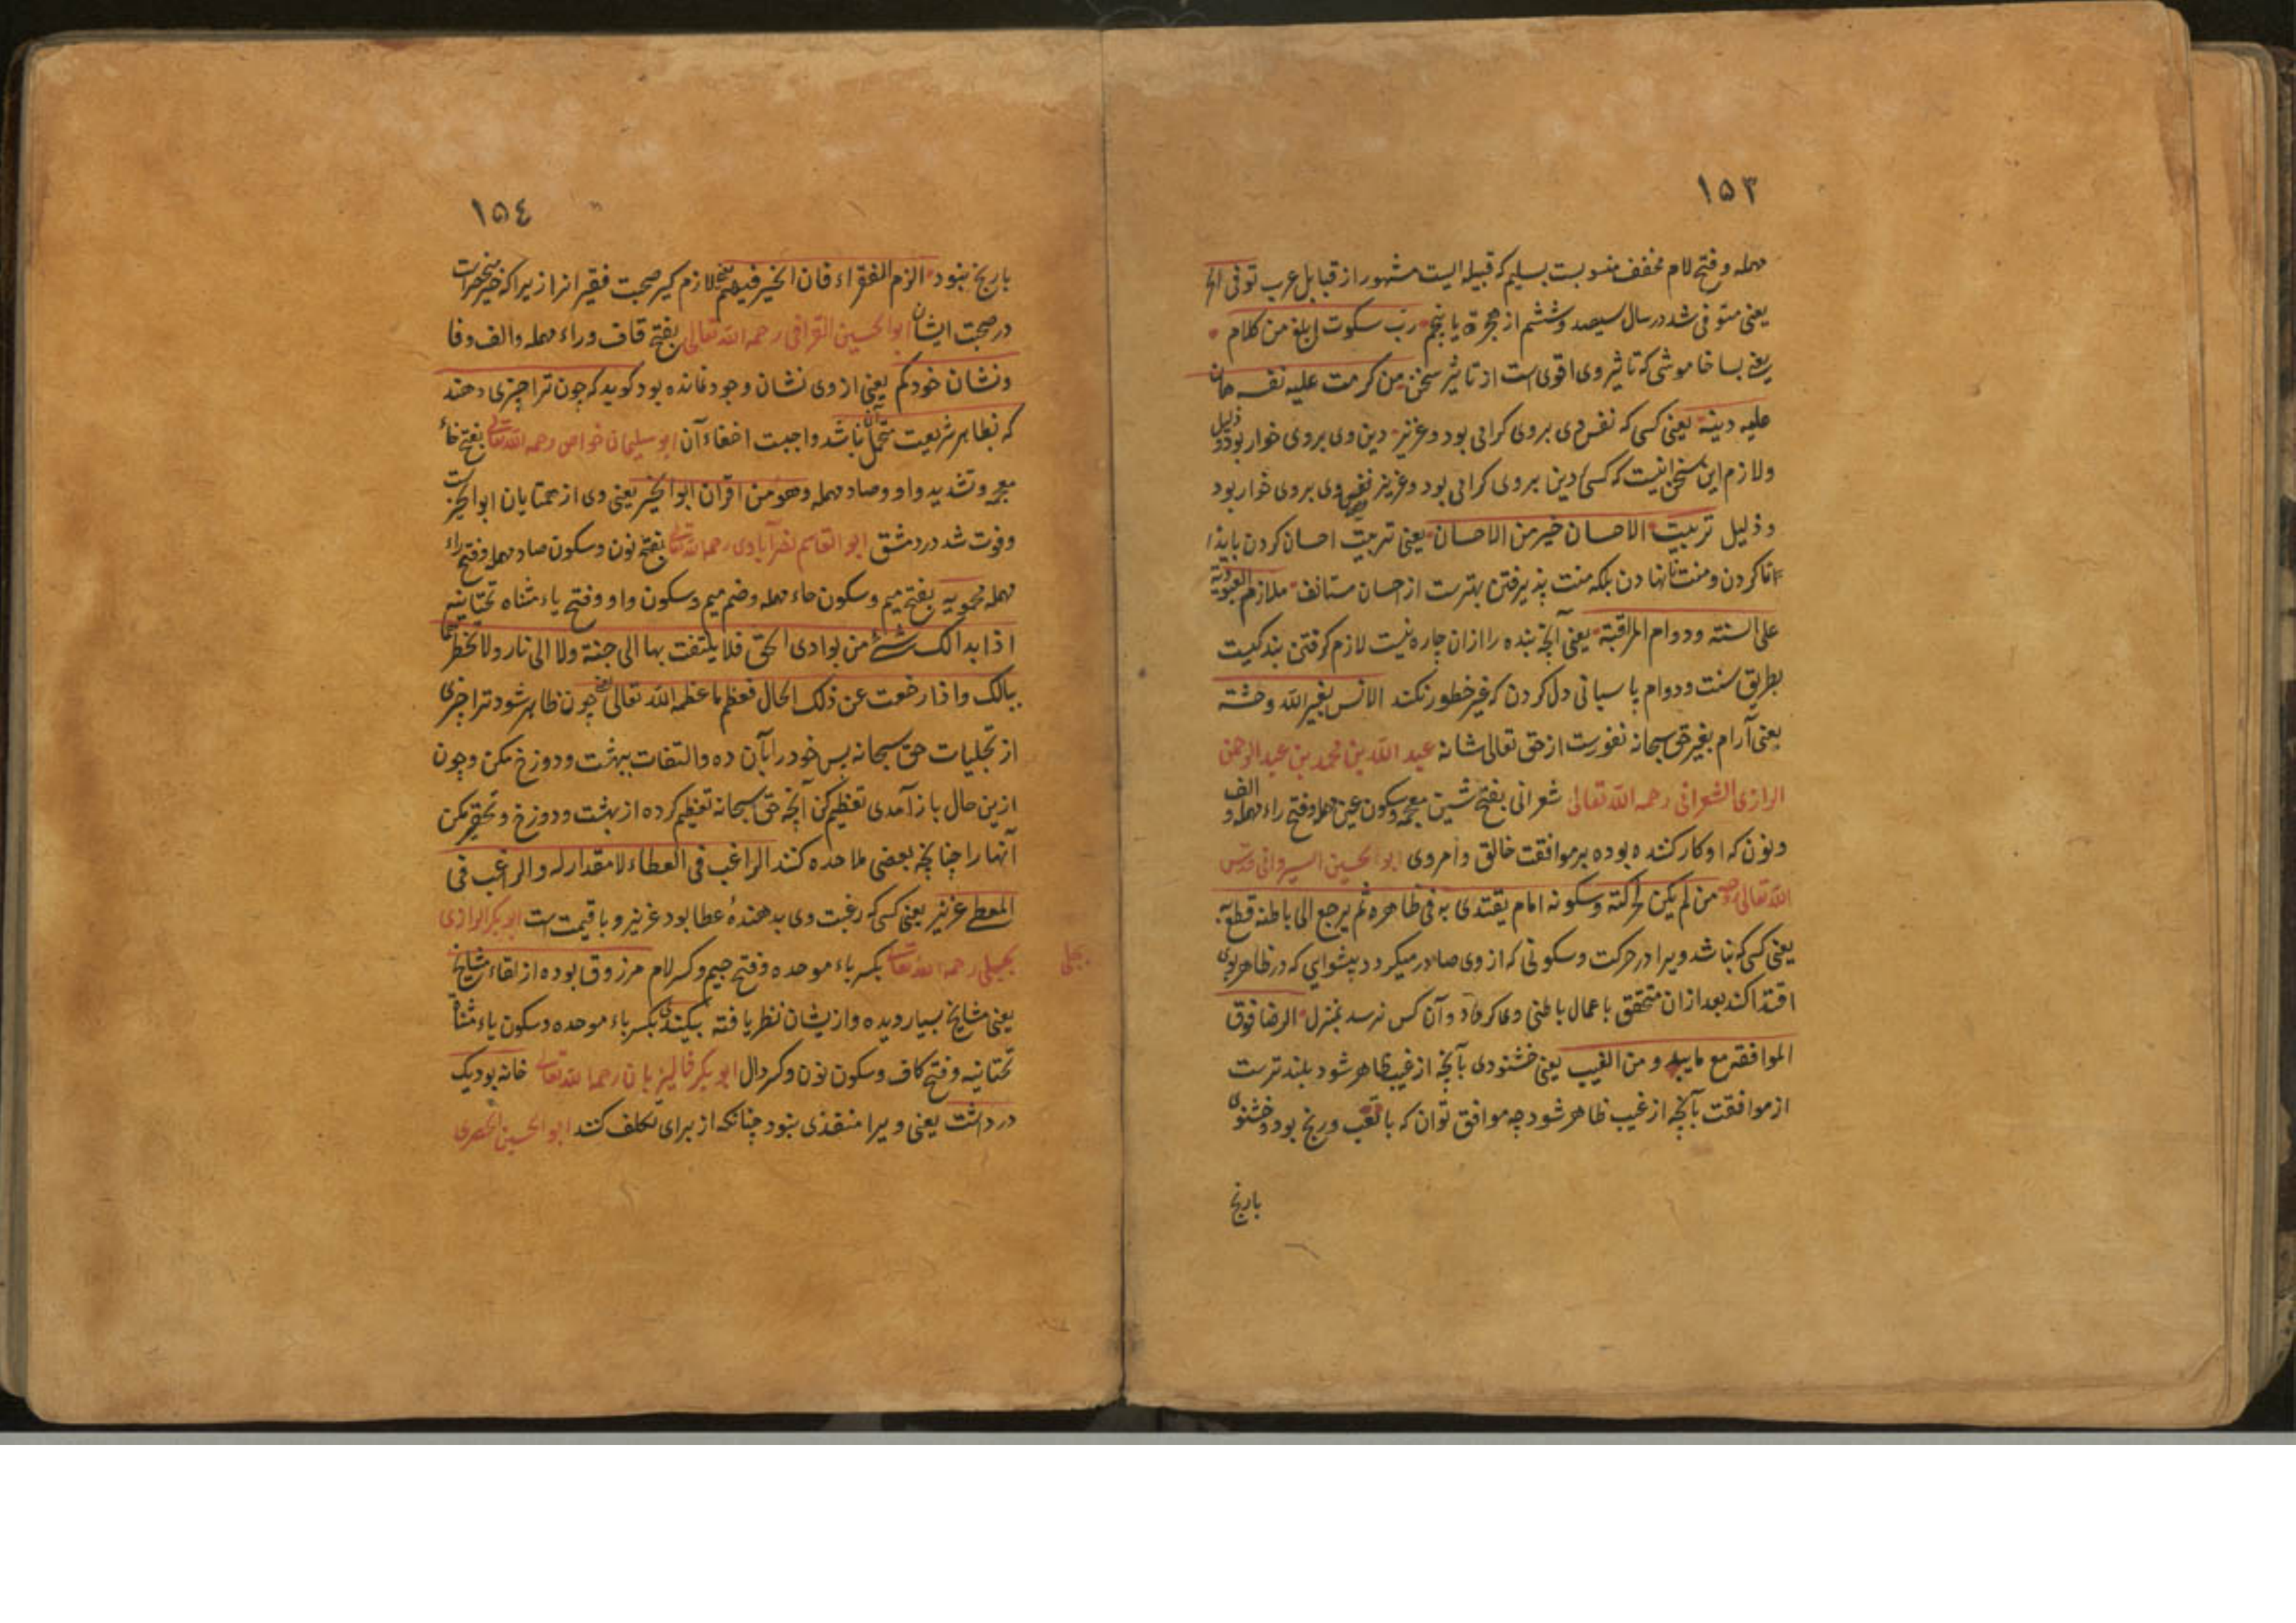 ١٥٣
مهمله و فتح لام مخفف منسوبست بسلیم که قبیله ایست مشهور از قبایل عرب توفی الخ
یعنی متوفی شد در سال سیصد و ششم از هجرة یا پنجم رب سکوت ابلغ من کلام
یعنی بسا خاموشی که تاثیر وی اقوی است از تاثیر سخن من کرمت علیه نفسه هان
علیه دینه یعنی کسی که نفس وی بروی کرامی بود و عزیز دین وی بروی خوار بود و ذلیل
ولازم این سخن اینست که کسی دین بروی کرامی بود و عزیز نفس وی بروی خوار بود
و ذلیل تربیت الاحسان خیر من الاحسان یعنی تربیت احسان کردن
کردن و منت نانهادن بلکه منت پذیرفتن بهترست از احسان مستانف ملازم العبودیة
علی السنته و دوام المراقبة یعنی آنچه بنده را از ان چاره نیست لازم کرفتن بندکیست
بطریق سنت و دوام پاسبانی دل کردن که غیر خطور نکند الانس بغیر الله وحشة
یعنی آرام بغیر حق سبحانه نفورست از حق تعالی شانه عبد الله بن محمد بن عبد الرحمن
الرازی الشعرانی رحمه الله تعالی شعرانی بفتح شین معجمه و سکون عین مهمله و فتح راء مهمله و الف
و نون که او کار کننده بوده بر موافقت خالق و امر وی ابو الحسین السیروانی قدس
الله تعالی روحه من لم یکن لحرکته و سکونه امام یقتدی به فی ظاهره ثم یرجع الی باطنه قطع به
یعنی کسی که نباشد ویرا در حرکت و سکونی که از وی صادر میکردد پیشوایی که در ظاهر بوی
اقتدا کند بعد از ان متحقق باعمال باطنی وی کردد و آن کس نرسد بمنزل الرضا فوق
الموافقة مع ما یبدو من الغیب یعنی خشنودی بآنچه از غیب ظاهر شود بلند ترست
از موافقت بآنچه از غیب ظاهر شود چه موافق توان که با تعب و رنج بود و خشنودی
بارنج
١٥٤
بارنج نبود الزم الفقراء فان الخیر فیهم یعنی لازم کیر صحبت فقیرانرا زیرا که خیر منحصرست
در صحبت ایشان ابو الحسین القرافی رحمه الله تعالی بفتح قاف و راء مهمله و الف و فا
و نشان خود کم یعنی از وی نشان وجود نمانده بود کوید که چون ترا چیزی دهند
که بظاهر شریعت متحمل آن نباشد واجبست اخفاء آن ابو سلیمان خواص رحمه الله تعالی بفتح خاء
معجمه و تشدید واو و صاد مهمله و هو من اقران ابو الخیر یعنی وی از همتایان ابو الخیرست
و فوت شد در دمشق ابو القاسم نصرآبادی رحمه الله تعالی بفتح نون و سکون صاد مهمله و فتح راء
مهمله محمویه بفتح میم و سکون حاء مهمله و ضم میم و سکون واو و فتح یاء مثناه تحتانیه
اذا بدا لک شئ من بوادی الحق فلا یلتفت بها الی جنة ولا الی نار ولا تخطرهما
ببالک و اذا رجعت عن ذلک الحال فعظم ما عظمه الله تعالی یعنی چون ظاهر شود ترا چیزی
از تجلیات حق سبحانه پس خود را بآن ده و التفات ببهشت و دوزخ مکن و چون
ازین حال باز آمدی تعظیم کن آنچه حق سبحانه تعظیم کرده از بهشت و دوزخ و تحقیر مکن
آنها را چنانچه بعضی ملاحده کنند الراغب فی العطاء لا مقدار له و الراغب فی
المعطی عزیز یعنی کسی که رغبت وی بدهندهٔ عطا بود عزیز و با قیمت است ابو بکر الرازی
بجلی رحمه الله تعالی بکسر باء موحده و فتح جیم و کسر لام مرزوق بوده از لقاء مشایخ
بجلی
یعنی مشایخ بسیار دیده و از یشان نظر یافته بیکندی بکسر باء موحده و سکون یاء مثناة
تحتانیه و فتح کاف و سکون نون و کسر دال ابو بکر فالیزبان رحمه الله تعالی خانه بودیک
در داشت یعنی ویرا منقذی نبود چنانکه از برای تکلف کنند ابو الحسین الحصری